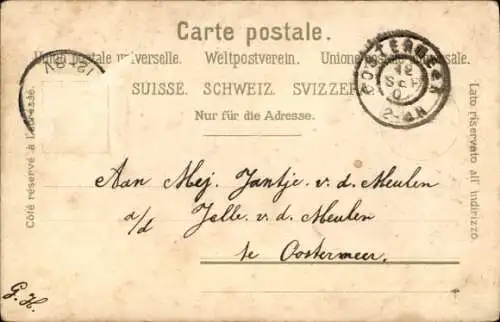 Carte postale.
Union postale universelle. Weltpostverein. Unione postale universale.
SUISSE. SCHWEIZ. SVIZZERA.
Nur für die Adresse.
Côté réservé à l'adresse.
Lato riservato all' indirizzo
OOSTERMEER
12
2-4N
Aan Mej. Jantje v. d. Meulen
a/d Jelle v. d. Meulen
te Oostermeer.
G. H.